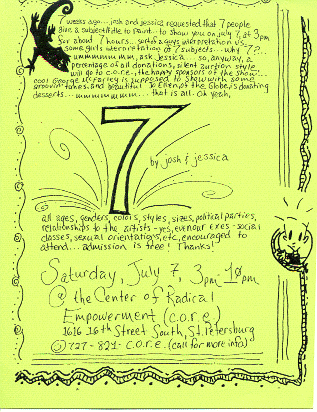 7 weeks ago... josh and jessica requested that 7 people
give a subject/title to paint.. to show you on july 7, at 3pm
for about 7 hours.. with a guys interpretation vs.
some girls interpretation of 7 subjects... why 7?..
ummmmmmm, ask Jessica... so, anyway, a
percentage of all donations, silent auction style
will go to c.o.r.e., the happy sponsors of the show...
cool George is supposed to show with some
groovin' tunes, and beautiful the Globe, is donating
desserts... mmmmmmm... that is all. Oh yeah,
7
by josh & jessica
all ages, genders, colors, styles, sizes, political parties,
relationships to the artists - yes, even our exes - social
classes, sexual orientations, etc, encouraged to
attend... admission is free! Thanks!
Saturday, July 7, 3pm-10pm
@ the Center of Radical
Empowerment (c.o.r.e.)
1616 16th Street South, St. Petersburg
727-821-c.o.r.e. (call for more info)